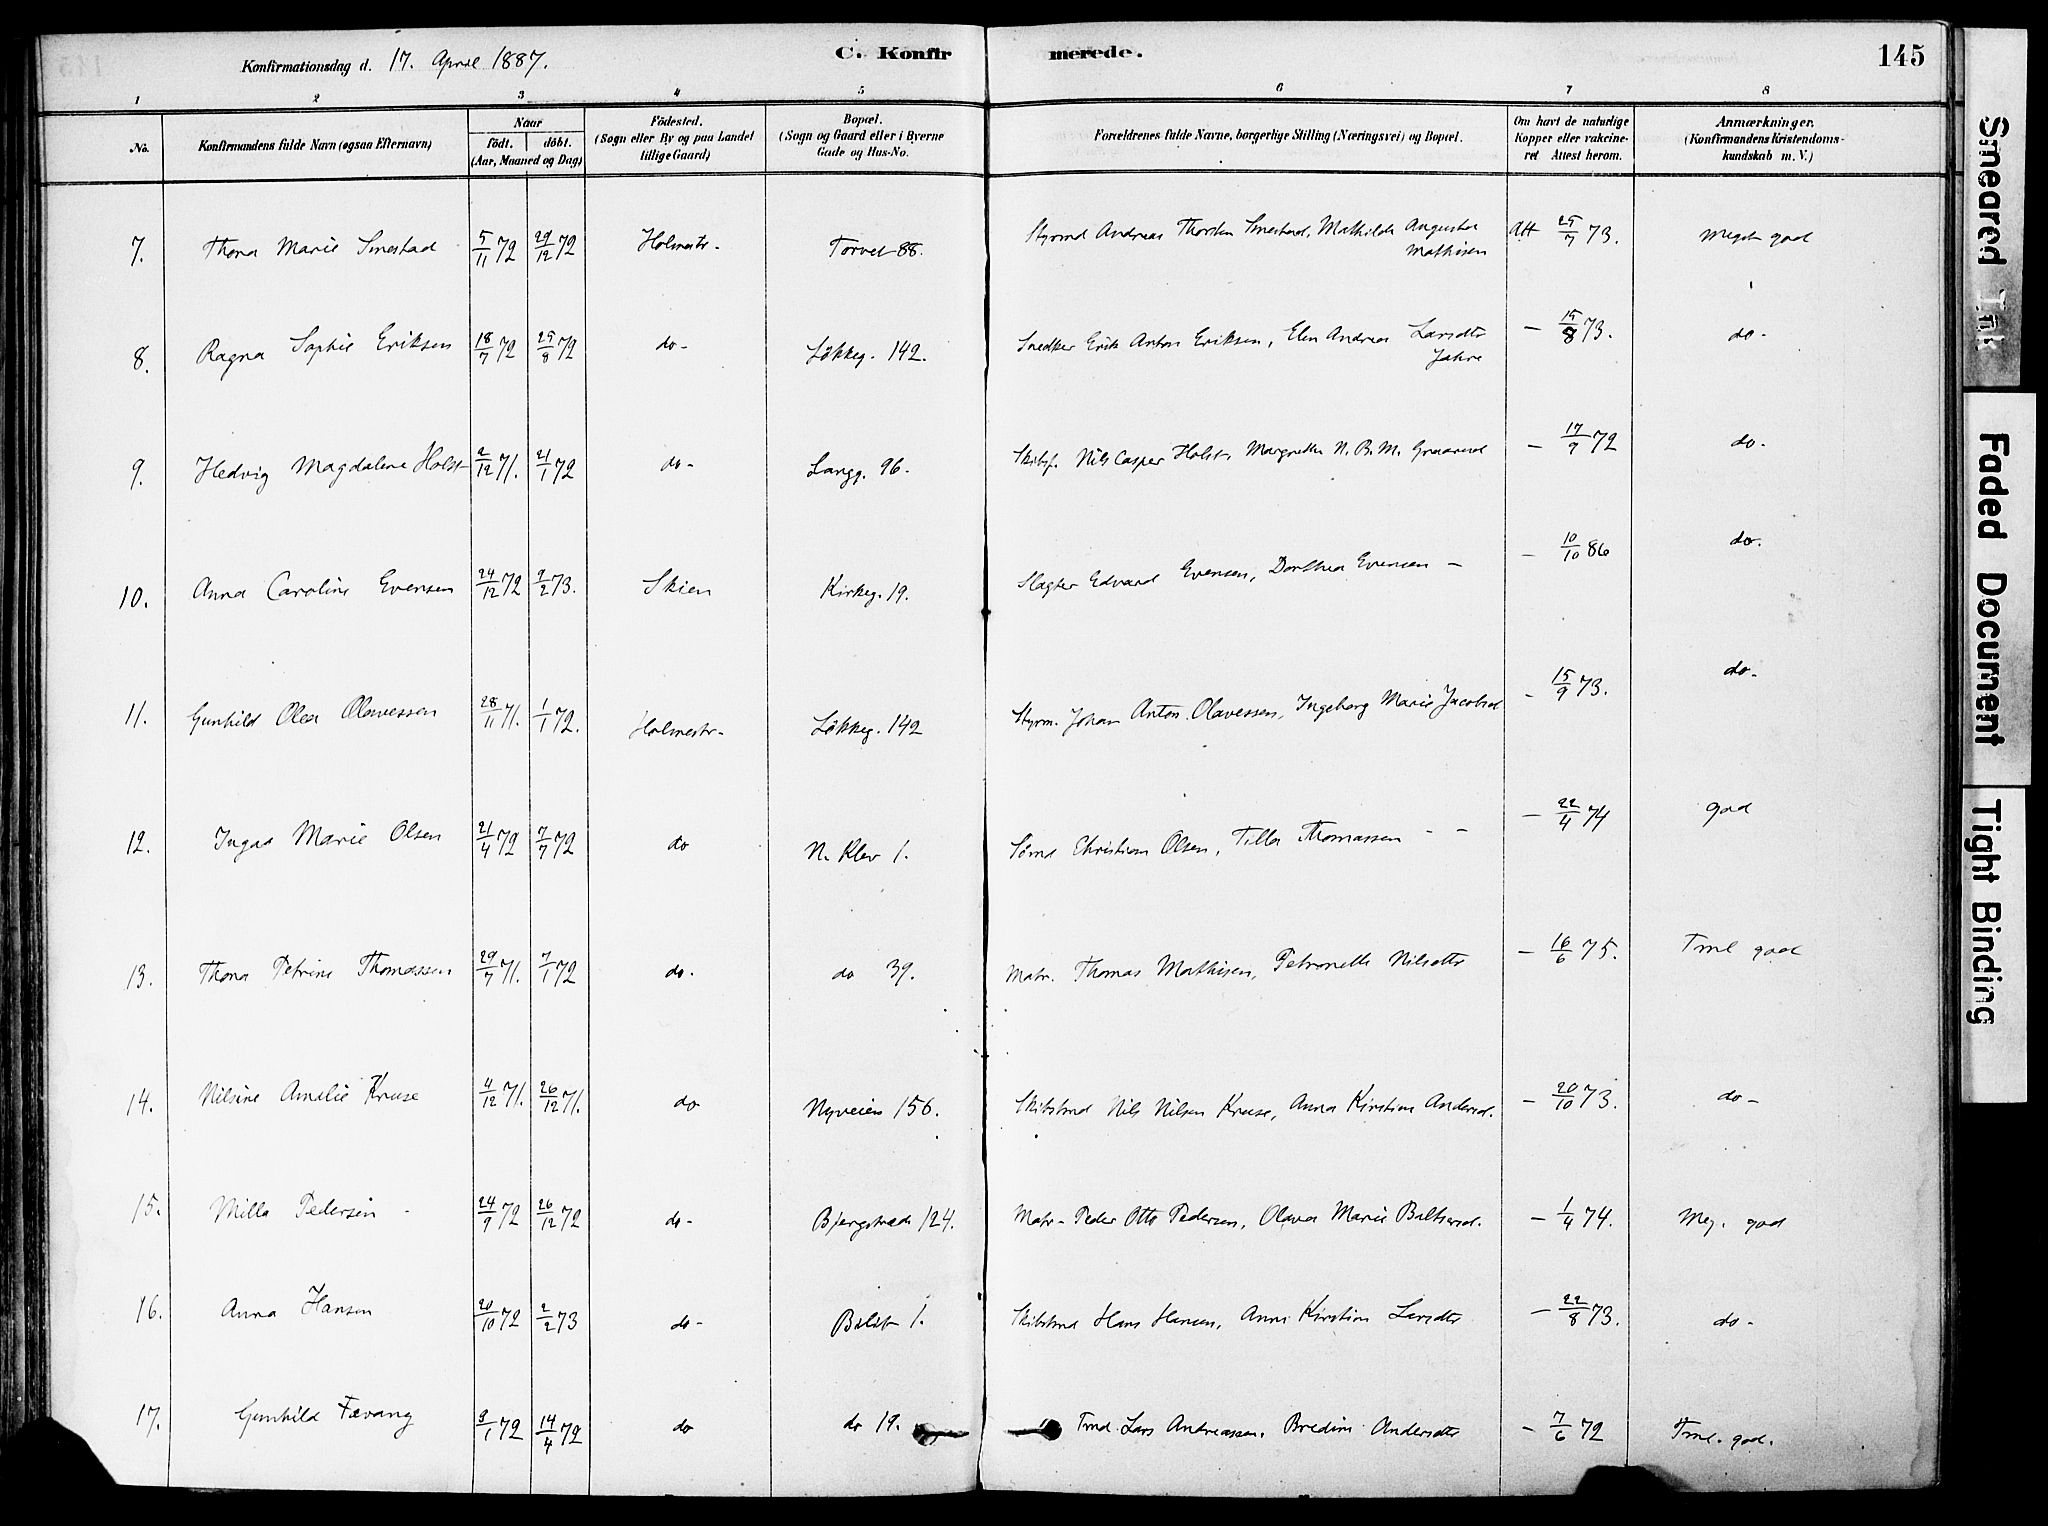 Konfirmationsdag d. 17. April 1887. C. Konfirmerede. 145
1 2 3 4 5 6 7 8
No. Konfirmandens fulde Navn (ogsaa Efternavn) Naar födt. döbt. (Aar, Maaned og Dag) Födested. (Sogn eller By og paa Landet tillige Gaard) Bopæl. (Sogn og Gaard eller i Byerne Gade og Hus-No. Forældrenes fulde Navne, borgerlige Stilling (Næringsvei) og Bopæl. Om havt de naturlige Kopper eller vakcineret Attest herom. Anmærkninger, (Konfirmandens Kristendomskundskab m. V.)
7. Thora Marie Smestad 5/11 72 29/12 72 Holmestr- Torvet 88. Styrmd Andreas Thorsten Smestad, Mathilde Augusta Mathisen Att 25/7 73. Meget god
8. Ragna Sophie Eriksen 18/7 72 25/8 72 do- Løkkeg. 142. Snedker Erik Anton Eriksen, Elen Andrea Larsdtr Jahre — 15/8 73. do-
9. Hedvig Magdalene Holst 2/12 71. 21/1 72 do- Langg. 96. Skibsf. Nils Casper Holst, Margrethe N. B. M. — 17/9 72 do-
10. Anna Caroline Evensen 24/12 72 9/2 73. Skien Kirkeg. 19. Slagter Edvard Evensen, Dorthea Evensen — — 10/10 86 do.
11. Gunhild Olea Olavessen 28/11 71. 1/1 72. Holmestr- Løkkeg. 142 Styrm. Johan Anton Olavessen, Ingeborg Marie Jacobsd — 15/9 73. do-
12. Ingad Marie Olsen 21/4 72 7/7 72 do N. Klev 1. Sømd Christian Olsen, Tilla Thomassen - - — 22/4 74 god
13. Thora Petrine Thomassen 29/7 71. 7/1 72 do- do 39. Matr. Thomas Mathisen, Petronelle Nilsdtr — 16/6 75. Tml god
14. Nilsine Amalie Kruse 4/12 71. 26/12 71. do Nyveien 156. Skibstmd Nils Nilsen Kruse, Anna Kirstine Andersd. — 20/10 73. do-
15. Milla Pedersen - 24/9 72 26/12 72 do- Bjergstræde 124. Matr- Peder Otto Pedersen, Olava Marie Baltsersd. — 1/4 74. Meg. god
16. Anna Hansen 20/10 72 2/2 73 do- 1. Skibstmd Hans Hansen, Anne Kirstine Larsdtr — 22/8 73. do-
17. Gunhild Fævang 9/1 72 14/4 72 do do 19. Tmd. Lars Andreassen, Bredine Andersdtr — 7/6 72 Tml. god.
Smeared Ink
Faded Document
Tight Binding